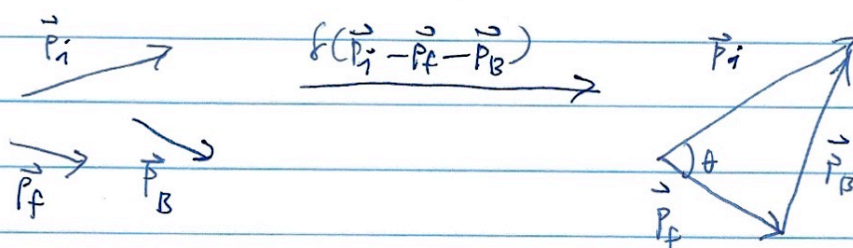 p⃗i
δ(p⃗i − p⃗f − p⃗B)
p⃗i
p⃗f
p⃗B
θ
p⃗f
p⃗B